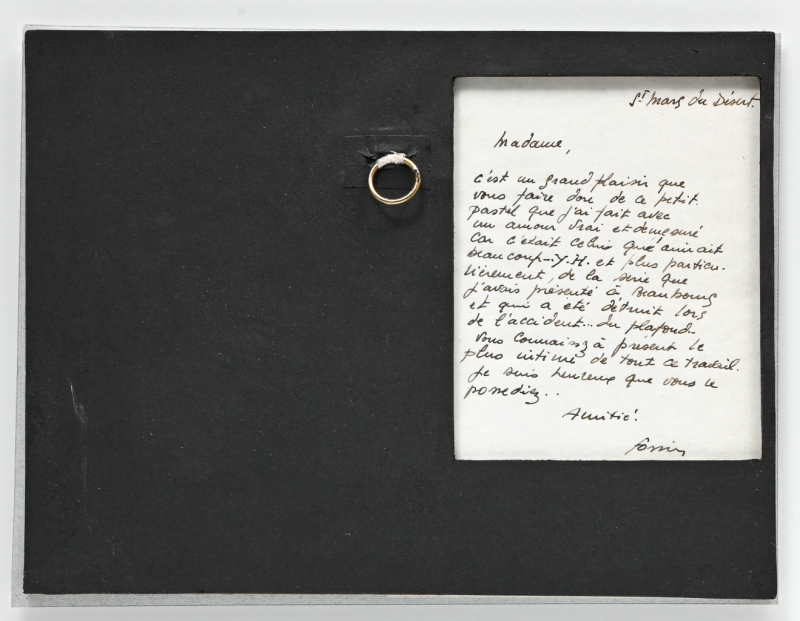 St Mars du Désert.
Madame,
c'est un grand plaisir que
vous faire don de ce petit
pastel que j'ai fait avec
un amour vrai et demesuré
car c'était celui qu'aimait
beaucoup.. Y.H. et plus particu-
lièrement, de la serie que
j'avais présenté à Beaubourg
et qui a été détruit lors
de l'accident... du plafond..
vous connaissez à présent le
plus intime de tout ce travail.
Je suis heureux que vous le
possediez..
Amitié.